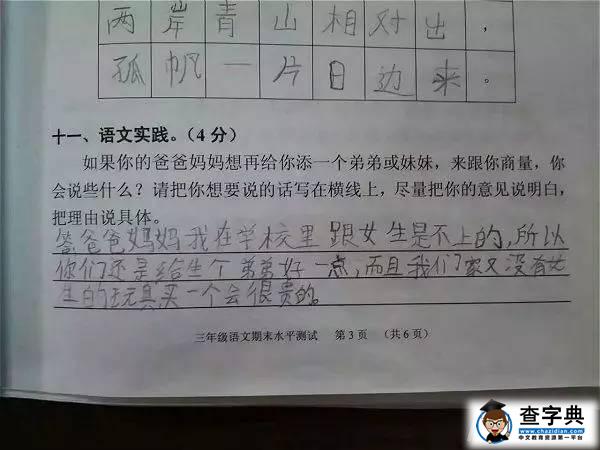 两岸青山相对出，
孤帆一片日边来。
十一、语文实践。（4分）
如果你的爸爸妈妈想再给你添一个弟弟或妹妹，来跟你商量，你
会说些什么？请把你想要说的话写在横线上，尽量把你的意见说明白，
把理由说具体。
答爸爸妈妈我在学校里跟女生是不上的，所以
你们还是给生个弟弟好一点，而且我们家又没有女
生的玩具买一个会很贵的。
三年级语文期末水平测试 第3页 （共6页）
查字典
www.chazidian.com
中文教育资源第一平台